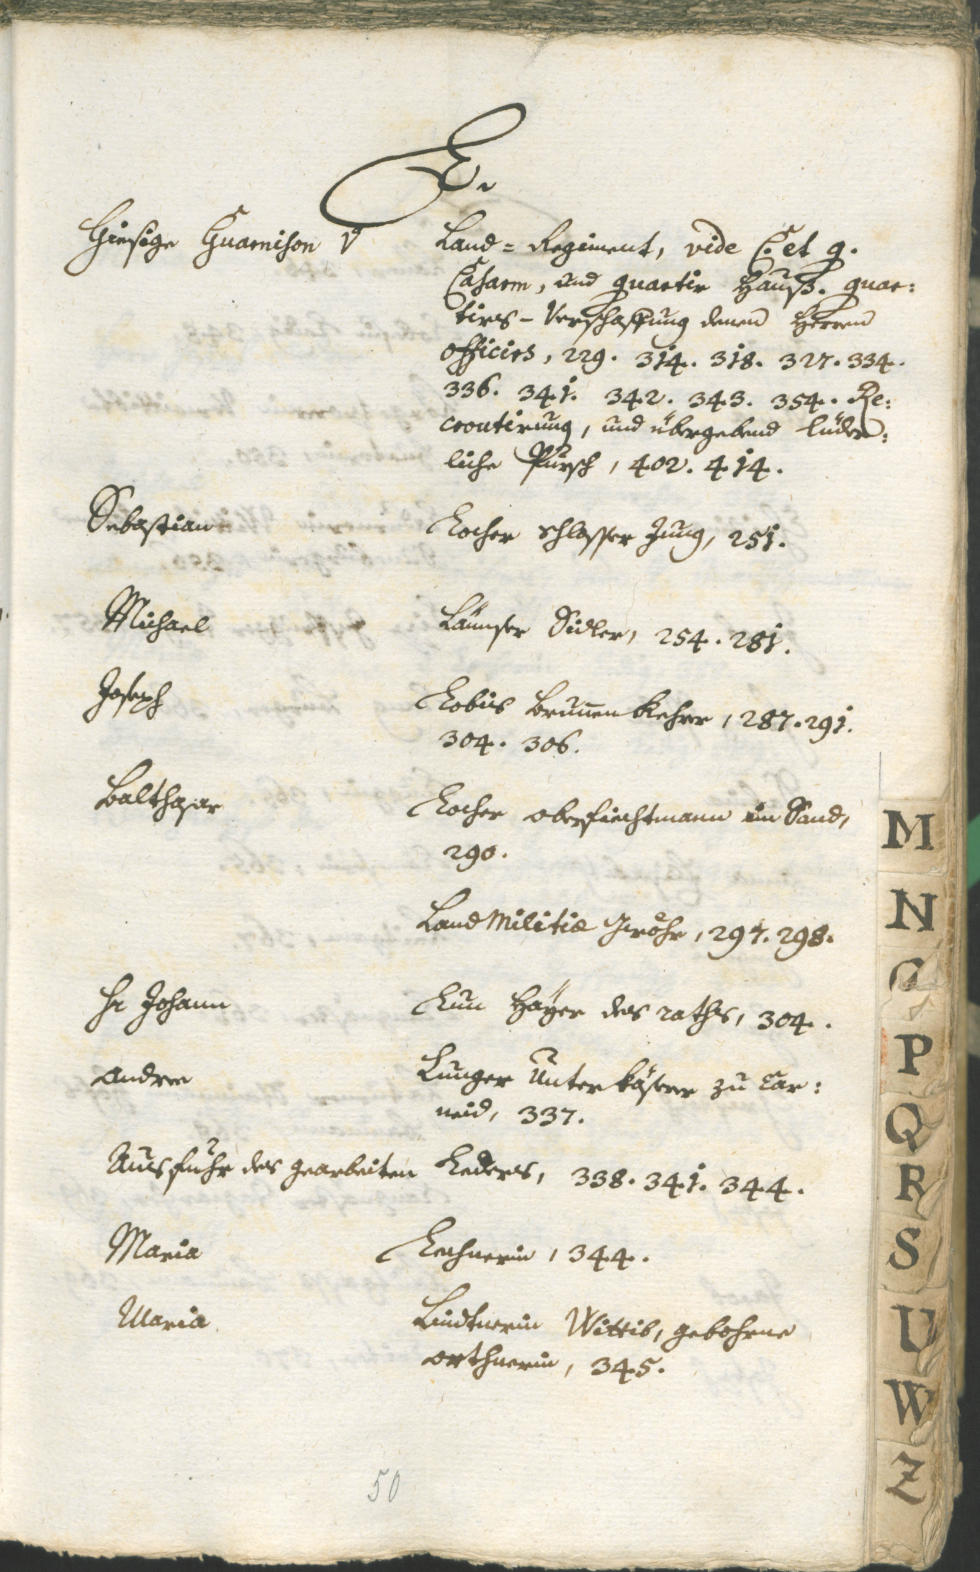 L.
Hiesige Guarnison v Land=Regiment, vide C. et q.
Casarm, und quartir Hauß. quar:
tirs-Verschaffung denen Herren
officiers, 229. 314. 318. 327. 334.
336. 341. 342. 343. 354. Re:
croutirung, und übergebend lüder:
liche Pursch, 402. 414.
Sebastian Locher Schlosser Jung, 251.
Michael Sidler, 254. 281.
Joseph Lobis Brunnenkehrer, 287. 291.
304. 306.
Balthasar Locher im Sand,
290.
Land Militiæ 297. 298.
Hr Johann Mayer des raths, 304.
Andree Lunger Unterkässer zu Car:
neid, 337.
Ausfuhr des gearbeiten Leders, 338. 341. 344.
Maria Lechnerin, 344.
Maria Lindtnerin Wittib, gebohrne
orthnerin, 345.
50
M
N
O
P
Q
R
S
U
W
Z